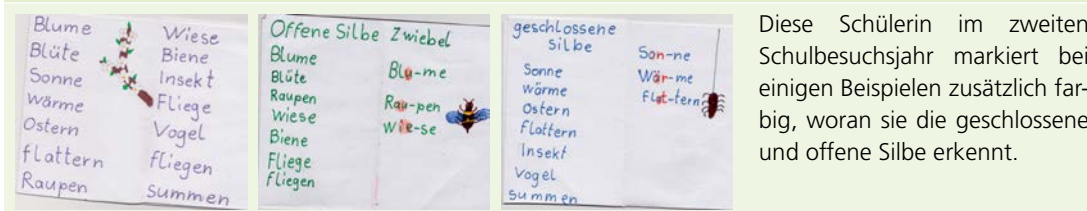 Blume
Blüte
Sonne
Wärme
Ostern
flattern
Raupen
Wiese
Biene
Insekt
Fliege
Vogel
fliegen
summen
Offene Silbe Zwiebel
Blume
Blüte
Raupen
Wiese
Biene
Fliege
fliegen
Blu-me
Rau-pen
Wie-se
geschlossene
Silbe
Sonne
wärme
Ostern
flattern
Insekt
Vogel
summen
Son-ne
Wär-me
flat-tern
Diese Schülerin im zweiten
Schulbesuchsjahr markiert bei
einigen Beispielen zusätzlich far-
big, woran sie die geschlossene
und offene Silbe erkennt.